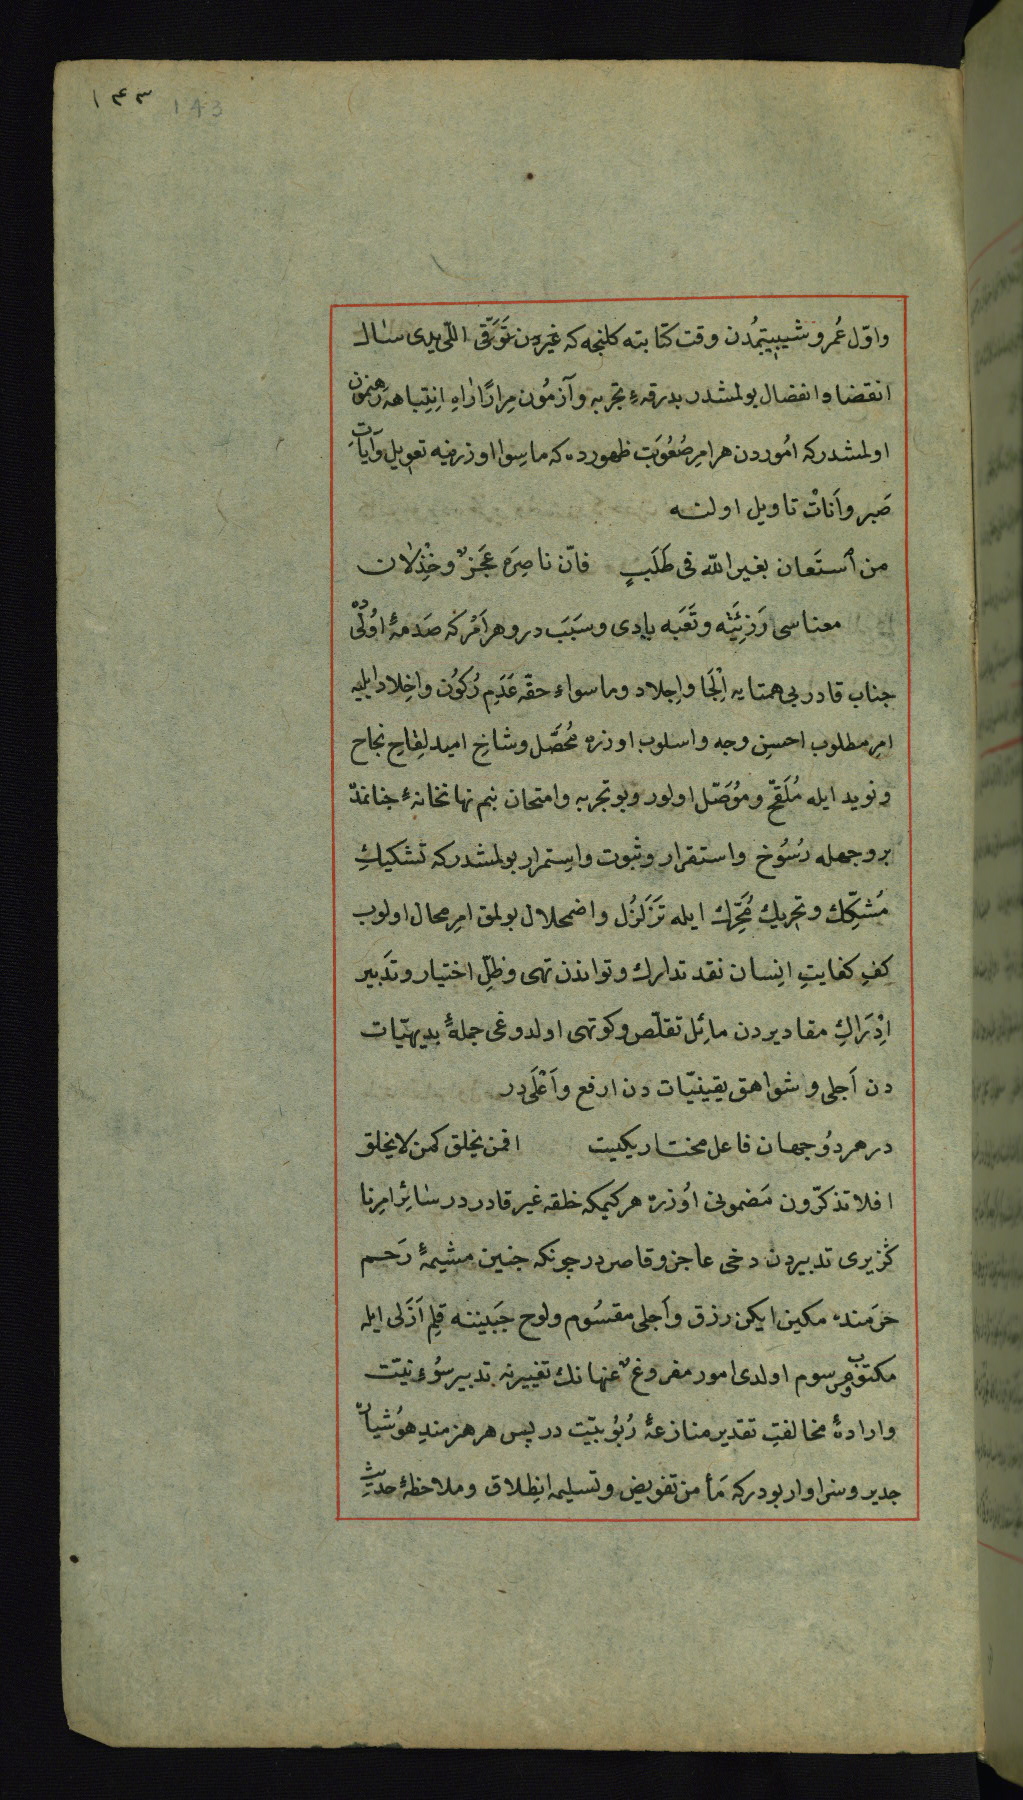 ١٤٣ 143
واوّل عُمر و شبیبتمُدن وقت كتابته كلنجه كه غیردن تَوَقّی اللّی یدی سال
انقضا و انفصال بولمشدر بدرقهٔ تجربه و آزمُون مِرارًا راهِ اِنتِباهه رَهنمون
اولمشدركه اُموردن هر امرِ صُعُوبَت ظهورده كه ماسِوا اوزرینه تعویل و آیاتِ
صَبر و اَناتْ تاویل اولنه
من ٱستَعان بغیر اللّٰه فی طَلَبٍ فانّ ناصِرَه عَجَزٌ و خِذْلان
معناسی رَزِیَّته و تَعَبه بادی و سَبَب در و هر اَمْر كه صَدمهٔ اُولٰی ده
جناب قادر بی همتایه اِلْجَا و اِجلاد و ماسواء حقّه عَدَمِ رُكوُن و اخِلاد ایلیه
امرِ مطلوب احسنِ وجه و اسلوب اوزره مُحصَّل و شاخِ امید لِقاحِ نجاح
و نوید ایله مُلَقَّح و مُوَصّل اولور و بو تجربه و امتحان بنم نهانخانهٔ جنانمده
بر وجهله رُسُوخ و استقرار و ثبوت و استمرار بولمشدركه تشكیكِ
مُشكِّك و تحریك مُحَرِّك ایله تَزَلزُل و اضمحلال بولمق امرِ محال اولوب
كفِ كفایتِ اِنسان نقد تدارك و تواندن تهی و ظلِّ اختیار و تدَبیر
اِدْرَاكِ مقادیردن مائِل تقلّص و كوتهی اولدوغی جملهٔ بدیهیّات
دن اَجلی و شواهق یقینیّات دن ارفع و اَعْلَی در
در هر دُو جهان فاعل مختار یكیست افمن یخلق كمن لا یخلق
افلا تذكّرون مَضمونی اُوزره هر كیمكه خلقه غیر قادر در سائر امرِ نا
كزیری تدبیردن دخی عاجز و قاصر در چونكه جنین مشیمهٔ رَحم
حرَمنده مكین ایكن رزق و اَجلی مقسُوم و لوح جَبیننه قلمِ اَزَلی ایله
مكتوب و مرسوم اولدی امور مفروغٌ عنهانك تغییرنه تدبیر سُوءِ نیّت
و ارادهٔ مخالفتِ تقدیر منازعهٔ رُبُوبیّت در پس هر هنرمندِ هوُشیاره
جدیر و سزاوار بودركه مَأمن تفویض و تسلیمه اِنطِلاق و ملاحظهٔ حدیثِ